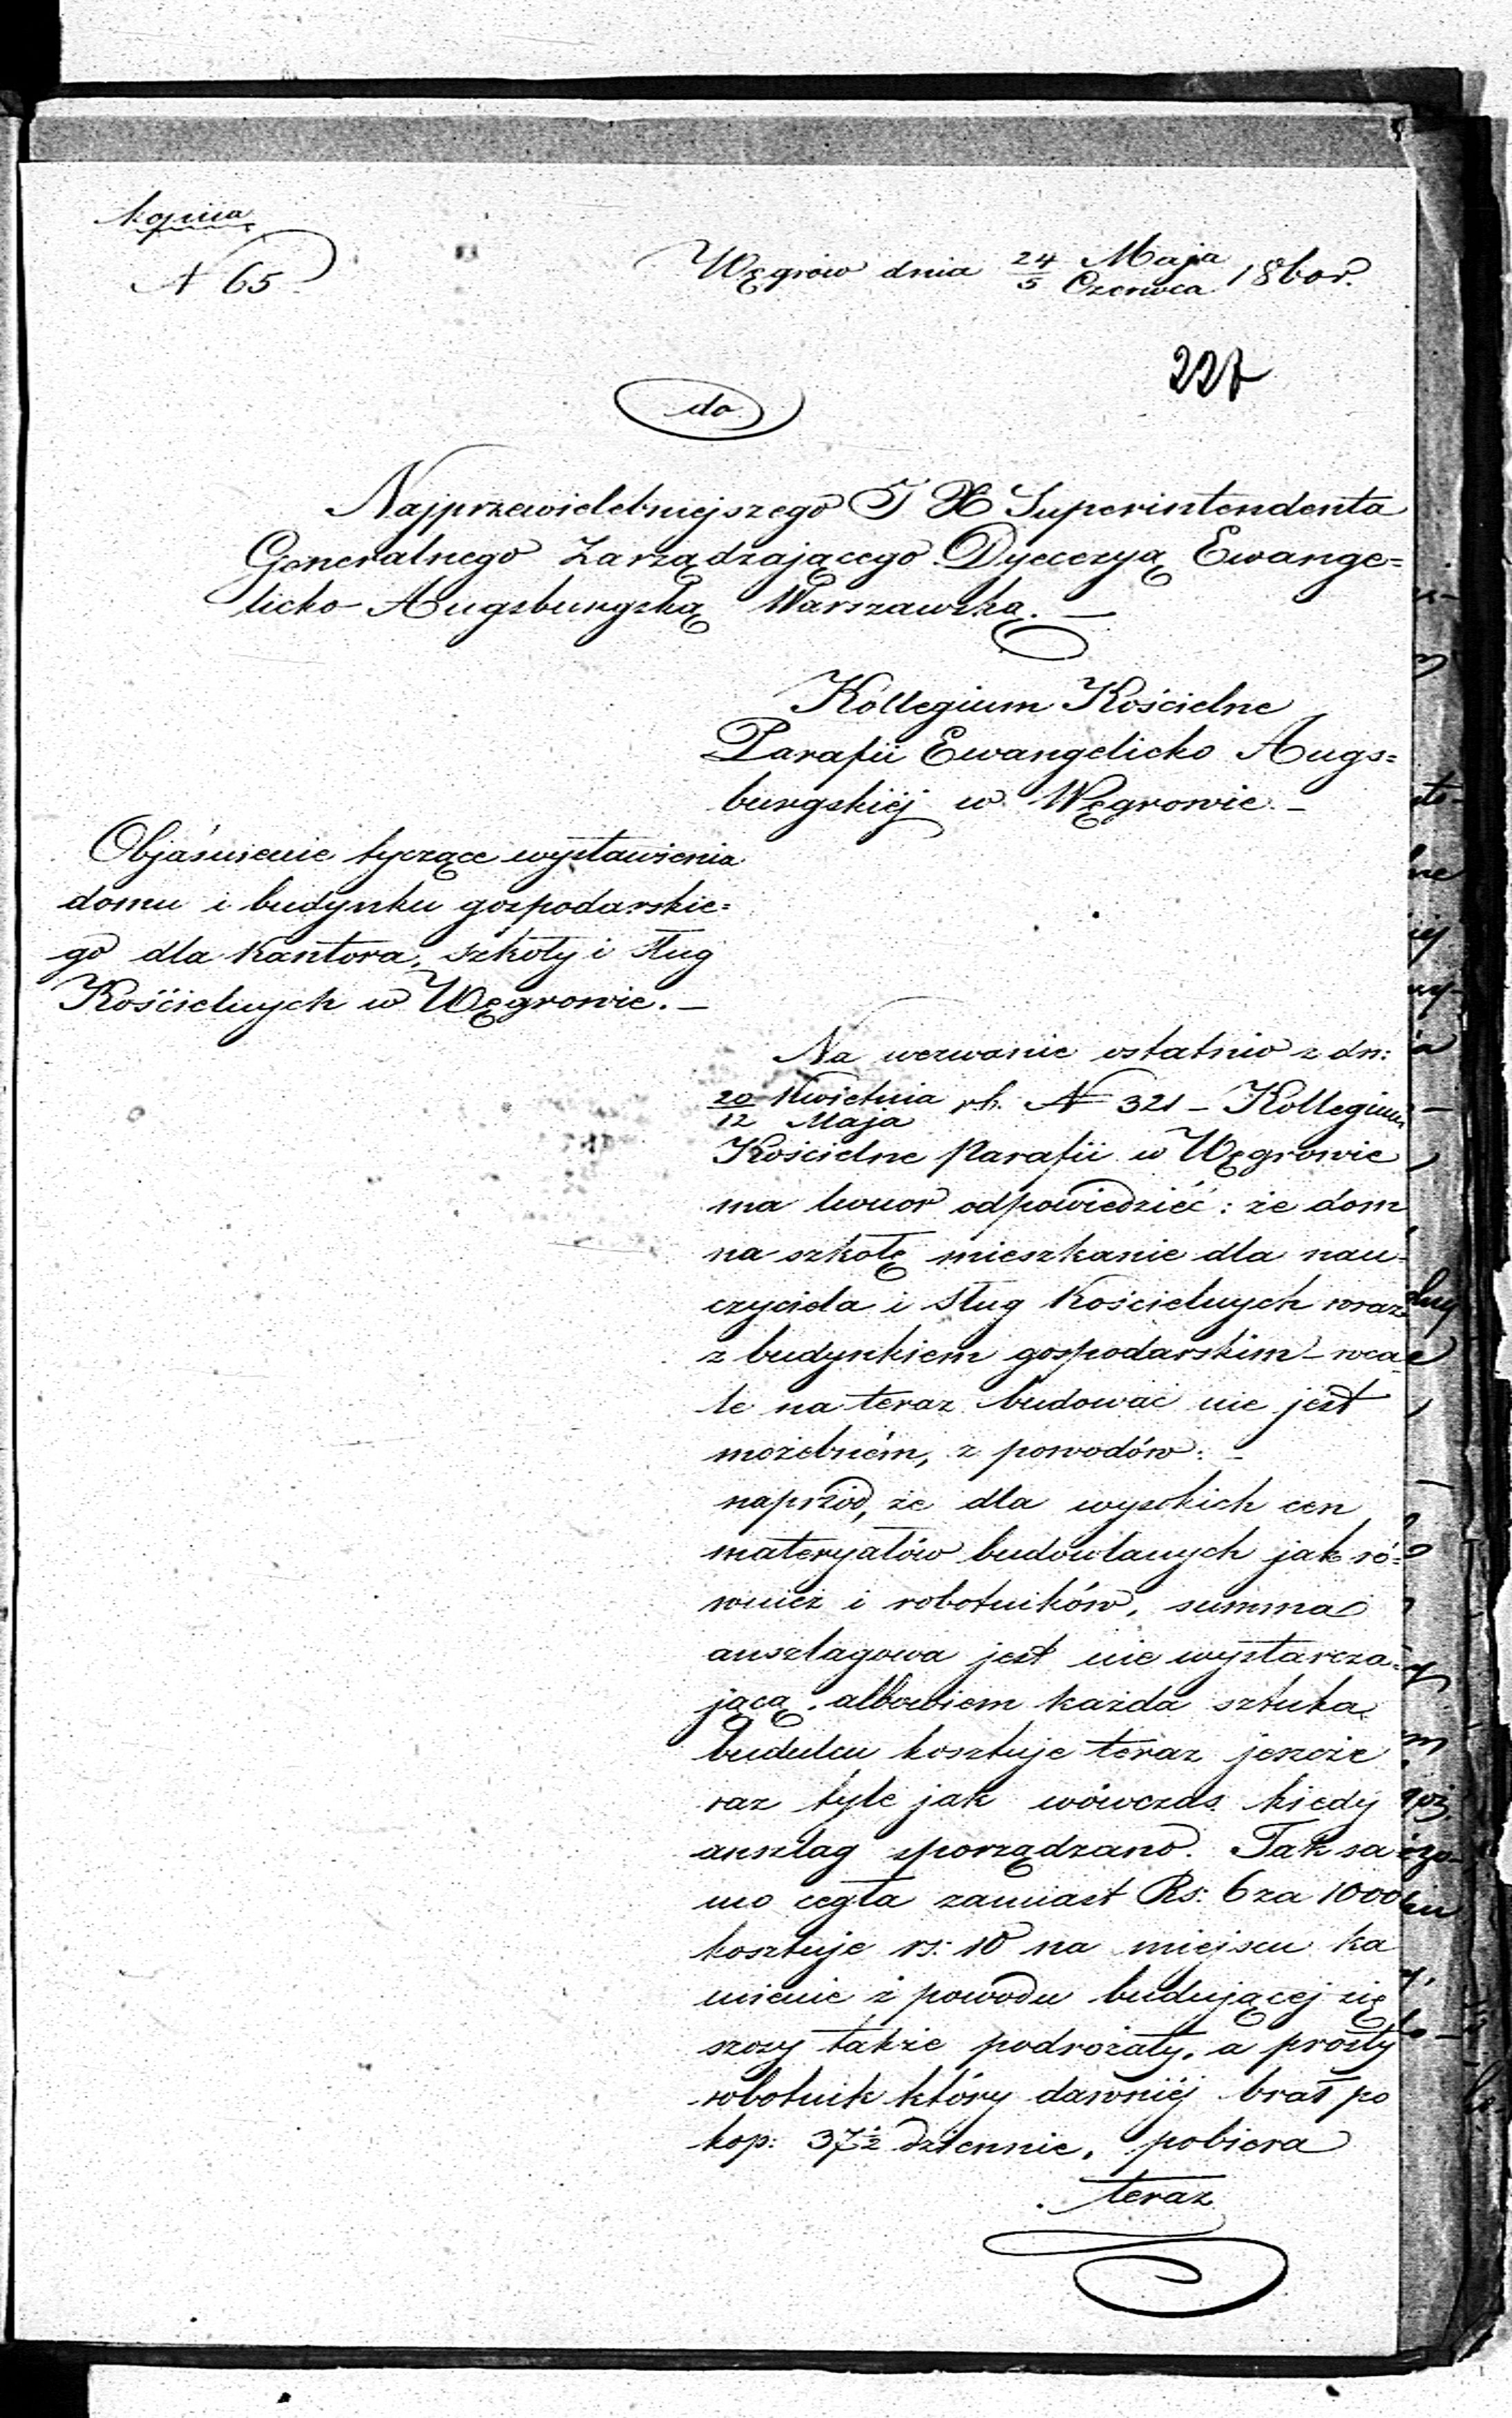 kopiia
N 65.
Węgrów dnia 24/5 Maja/Czerwca 1860r.
227
do
Najprzewielebniejszego J X Superintendenta
Generalnego Zarządzającego Dyecezyą Ewange=
licko-Augsburgską Warszawską. —
Kollegium Kościelne
Parafii Ewangelicko Augs=
burgskiéj w Węgrowie. –
Objaśnienie tyczące wystawienia
domu i budynku gospodarskie=
go dla Kantora, szkoły i sług
Kościelnych w Węgrowie. –
Na wezwanie ostatnio z dn:
20/12 Kwietnia/Maja rb. N 321 – Kollegium
Kościelne Parafii w Węgrowie
ma honor odpowiedzieć: że dom
na szkołę mieszkanie dla nau-
czyciela i sług Kościelnych wraz
z budynkiem gospodarskim – wca-
le na teraz budować nie jest
możebném, z powodów: –
naprzód, że dla wysokich cen
materyałów budowlanych jak ró-
wnież i robotników, summa
anszlagowa jest nie wystarcza-
jącą, albowiem każda sztuka
budulcu kosztuje teraz jeszcze
raz tyle jak wówczas kiedy
anszlag sporządzano. Tak sa
mo cegła zamiast Rs: 6 za 1000
kosztuje rs: 10 na miejscu ka
mienie z powodu budującej się
szosy także podrożały, a prosty
robotnik który dawniéj brał po
kop: 37½ dziennie, pobiera
teraz